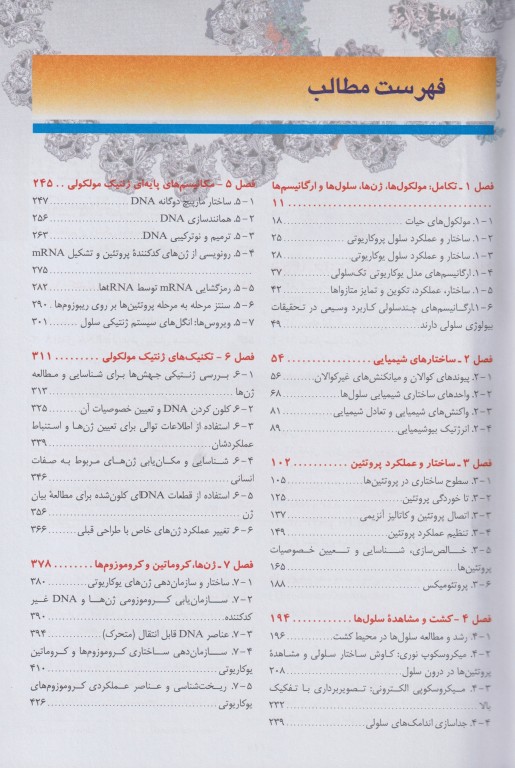 فهرست مطالب
فصل ۱ ـ تکامل: مولکول‌ها، ژن‌ها، سلول‌ها و ارگانیسم‌ها
۱۱
۱-۱. مولکول‌های حیات ۱۸
۱-۲. ساختار و عملکرد سلول پروکاریوتی ۲۵
۱-۳. ساختار و عملکرد سلول یوکاریوتی ۲۸
۱-۴. ارگانیسم‌های مدل یوکاریوتی تک‌سلولی ۳۷
۱-۵. ساختار، عملکرد، تکوین و تمایز متازواها ۴۲
۱-۶. ارگانیسم‌های چندسلولی کاربرد وسیعی در تحقیقات
بیولوژی سلولی دارند ۴۹
فصل ۲ ـ ساختارهای شیمیایی ۵۴
۲-۱. پیوندهای کوالان و میانکنش‌های غیرکوالان ۵۶
۲-۲. واحدهای ساختاری شیمیایی سلول‌ها ۶۸
۲-۳. واکنش‌های شیمیایی و تعادل شیمیایی ۸۱
۲-۴. انرژتیک بیوشیمیایی ۸۹
فصل ۳ ـ ساختار و عملکرد پروتئین ۱۰۲
۳-۱. سطوح ساختاری در پروتئین‌ها ۱۰۵
۳-۲. تا خوردگی پروتئین ۱۲۵
۳-۳. اتصال پروتئین و کاتالیز آنزیمی ۱۳۷
۳-۴. تنظیم عملکرد پروتئین ۱۴۹
۳-۵. خالص‌سازی، شناسایی و تعیین خصوصیات
پروتئین‌ها ۱۶۵
۳-۶. پروتئومیکس ۱۸۸
فصل ۴ - کشت و مشاهدهٔ سلول‌ها ۱۹۴
۴-۱. رشد و مطالعه سلول‌ها در محیط کشت ۱۹۶
۴-۲. میکروسکوپ نوری: کاوش ساختار سلولی و مشاهدهٔ
پروتئین‌ها در درون سلول ۲۰۸
۴-۳. میکروسکوپی الکترونی: تصویربرداری با تفکیک
بالا ۲۳۲
۴-۴. جداسازی اندامک‌های سلولی ۲۳۹
فصل ۵ - مکانیسم‌های پایه‌ای ژنتیک مولکولی ۲۴۵
۵-۱. ساختار مارپیچ دوگانه DNA ۲۴۷
۵-۲. همانندسازی DNA ۲۵۶
۵-۳. ترمیم و نوترکیبی DNA ۲۶۳
۵-۴. رونویسی از ژن‌های کدکنندهٔ پروتئین و تشکیل mRNA
۲۷۵
۵-۵. رمزگشایی mRNA توسط tRNAها ۲۸۲
۵-۶. سنتز مرحله به مرحله پروتئین‌ها بر روی ریبوزوم‌ها ۲۹۰
۵-۷. ویروس‌ها: انگل‌های سیستم ژنتیکی سلول ۳۰۱
فصل ۶ - تکنیک‌های ژنتیک مولکولی ۳۱۱
۶-۱. بررسی ژنتیکی جهش‌ها برای شناسایی و مطالعه
ژن‌ها ۳۱۳
۶-۲. کلون کردن DNA و تعیین خصوصیات آن ۳۲۵
۶-۳. استفاده از اطلاعات توالی برای تعیین ژن‌ها و استنباط
عملکردشان ۳۳۹
۶-۴. شناسایی و مکان‌یابی ژن‌های مربوط به صفات
انسانی ۳۴۶
۶-۵. استفاده از قطعات DNAای کلون‌شده برای مطالعهٔ بیان
ژن ۳۵۶
۶-۶. تغییر عملکرد ژن‌های خاص با طراحی قبلی ۳۶۶
فصل ۷ ـ ژن‌ها، کروماتین و کروموزوم‌ها ۳۷۸
۷-۱. ساختار و سازمان‌دهی ژن‌های یوکاریوتی ۳۸۰
۷-۲. سازمان‌یابی کروموزومی ژن‌ها و DNA غیر
کدکننده ۳۹۰
۷-۳. عناصر DNA قابل انتقال (متحرک) ۳۹۴
۷-۴. سازمان‌دهی ساختاری کروموزوم‌ها و کروماتین
یوکاریوتی ۴۱۰
۷-۵. ریخت‌شناسی و عناصر عملکردی کروموزوم‌های
یوکاریوتی ۴۲۶